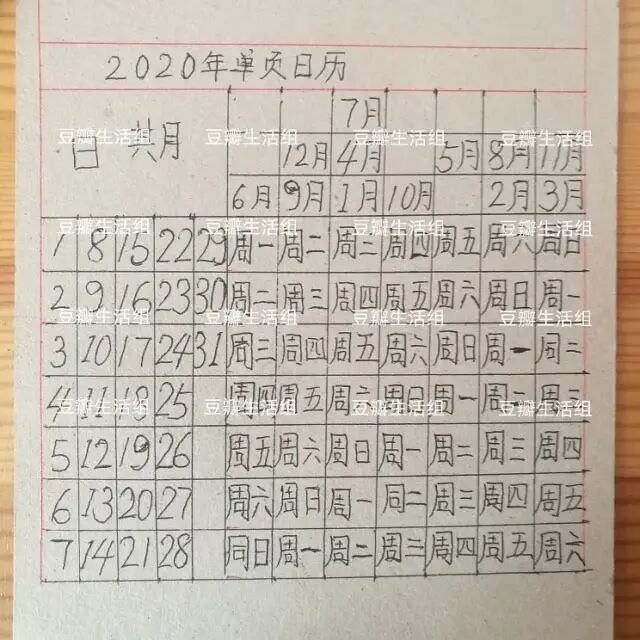 2020年单页日历
7月
12月 4月 5月 8月 11月
日 共月
6月 9月 1月 10月 2月 3月
1 8 15 22 29 周一 周二 周三 周四 周五 周六 周日
2 9 16 23 30 周二 周三 周四 周五 周六 周日 周一
3 10 17 24 31 周三 周四 周五 周六 周日 周一 同二
4 11 18 25 周四 周五 周六 周日 周一 周二 周三
5 12 19 26 周五 周六 周日 周一 周二 周三 周四
6 13 20 27 周六 周日 周一 同二 周三 周四 周五
7 14 21 28 同日 周一 周二 周三 周四 周五 周六
豆瓣生活组 豆瓣生活组 豆瓣生活组 豆瓣生活组
豆瓣生活组 豆瓣生活组 豆瓣生活组 豆瓣生活组
豆瓣生活组 豆瓣生活组 豆瓣生活组 豆瓣生活组
豆瓣生活组 豆瓣生活组 豆瓣生活组 豆瓣生活组